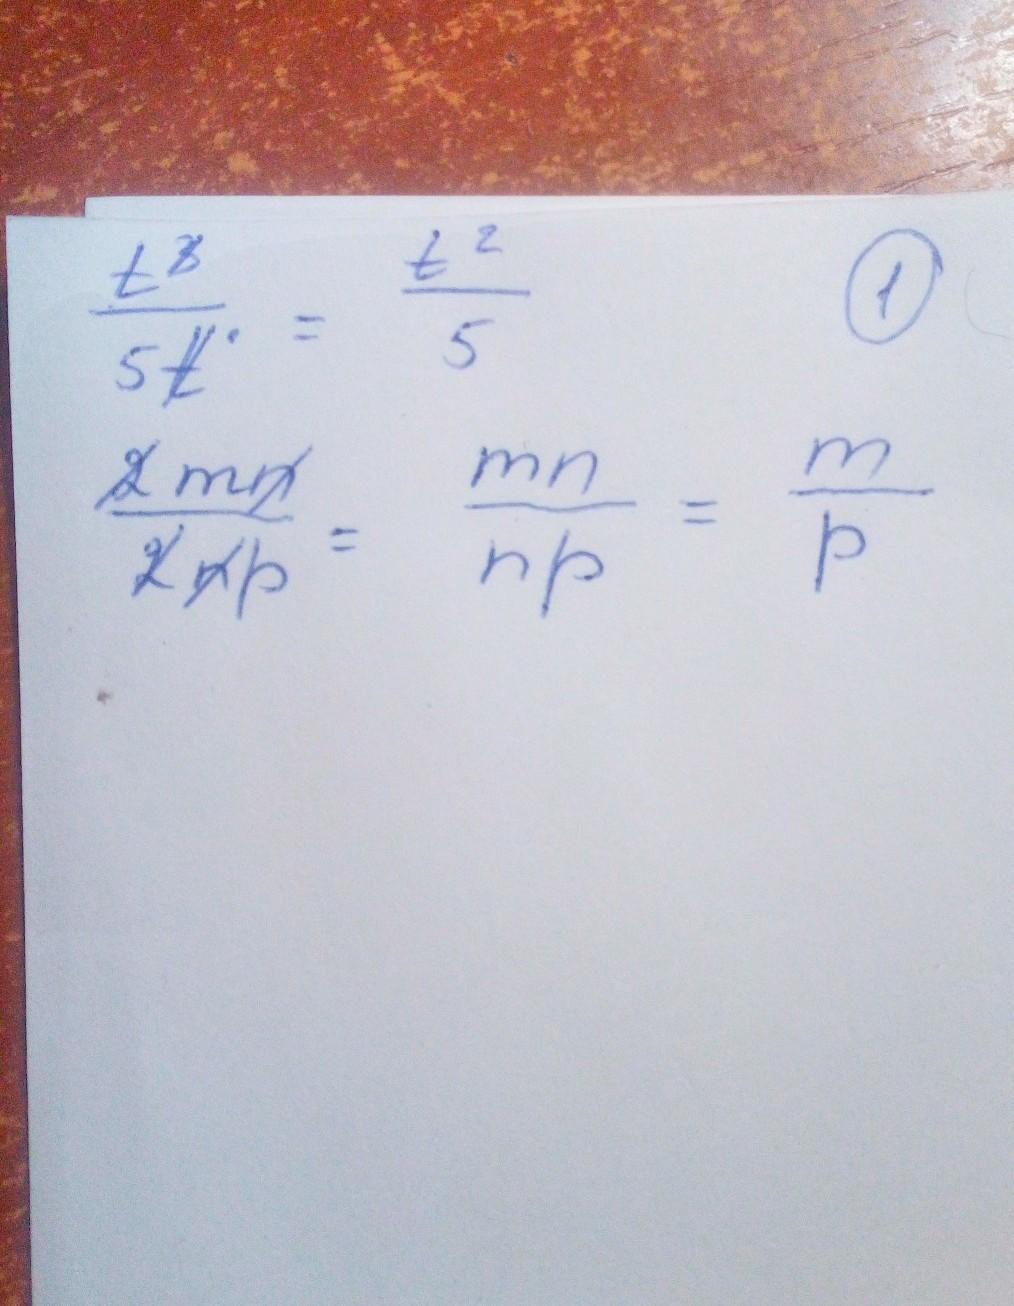 t³/5t = t²/5
①
2mn/2np = mn/np = m/p